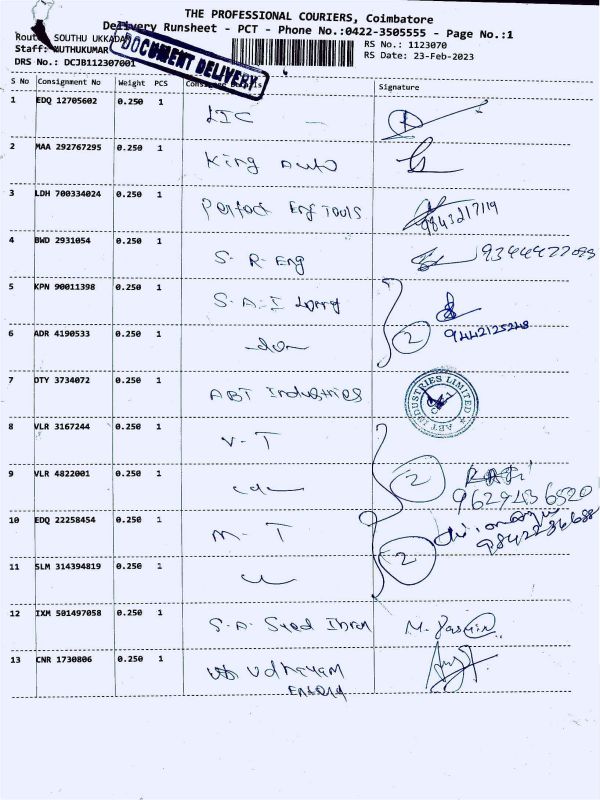 THE PROFESSIONAL COURIERS, Coimbatore
Delivery Runsheet - PCT - Phone No.:0422-3505555 - Page No.:1
Route: SOUTHU UKKADAM
RS No.: 1123070
Staff: MUTHUKUMAR
RS Date: 23-Feb-2023
DRS No.: DCJB112307001
DOCUMENT DELIVERY
S No Consignment No Weight PCS Consignee Details Signature
1 EDQ 12705602 0.250 1 LIC
2 MAA 292767295 0.250 1 King Auto
3 LDH 700334024 0.250 1 Perfect Eng Tools 9843217119
4 BWD 2931054 0.250 1 S. R. Eng
5 KPN 90011398 0.250 1 S.A.I Lorry
2 9442125248
6 ADR 4190533 0.250 1 do
7 DTY 3734072 0.250 1 ABT Industries
ABT INDUSTRIES LIMITED
8 VLR 3167244 0.250 1 V-T
9 VLR 4822001 0.250 1 2
9629436520
10 EDQ 22258454 0.250 1 M-T
2
11 SLM 314394819 0.250 1
12 IXM 501497058 0.250 1 S.A. Syed Ibra M. Yasmin
13 CNR 1730806 0.250 1 Udhayam